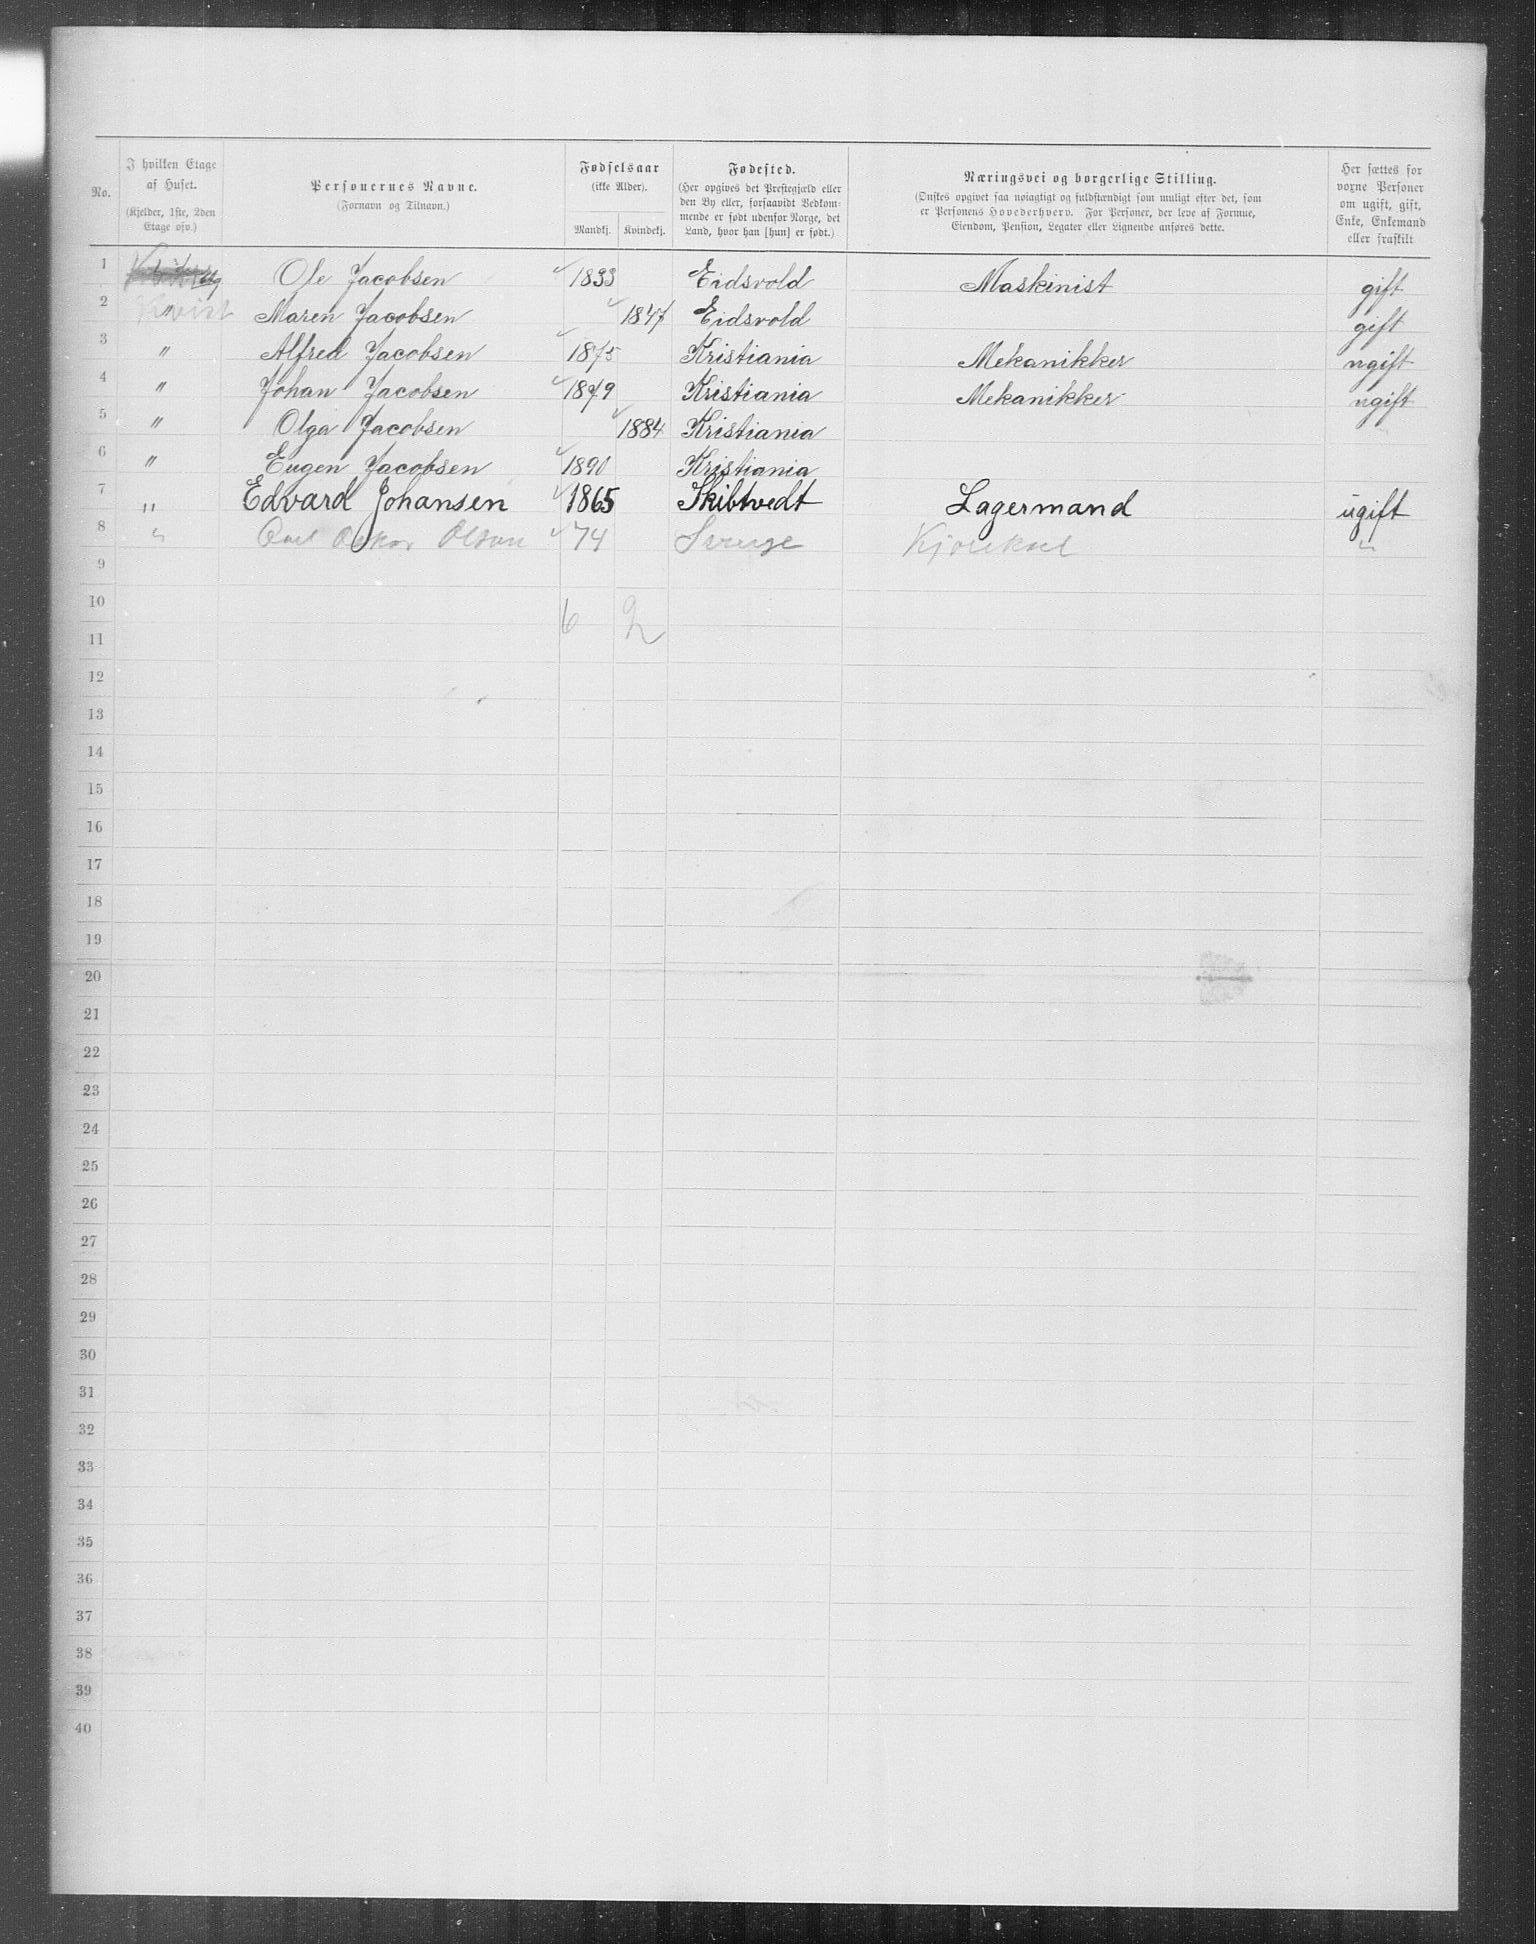 No. | I hvilken Etage af Huset. (Kjelder, 1ste, 2den Etage osv.) | Personernes Navne. (Fornavn og Tilnavn.) | Fødselsaar (ikke Alder). Mandkj. | Kvindekj. | Fødested. (Her opgives det Prestegjæld eller den By eller, forsaavidt Vedkommende er født udenfor Norge, det Land, hvor han [hun] er født.) | Næringsvei og borgerlige Stilling. (Ønskes opgivet saa nøiagtigt og fuldstændigt som muligt efter det, som er Personens Hovederhverv. For Personer, der leve af Formue, Eiendom, Pension, Legater eller Lignende anføres dette. | Her sættes for voxne Personer om ugift, gift, Enke, Enkemand eller fraskilt
1 Ole Jacobsen 1833 Eidsvold Maskinist gift
2 Kvist Maren Jacobsen 1847 Eidsvold gift
3 " Alfred Jacobsen 1875 Kristiania Mekanikker ugift
4 " Johan Jacobsen 1879 Kristiania Mekanikker ugift
5 " Olga Jacobsen 1884 Kristiania
6 " Eugen Jacobsen 1890 Kristiania
7 " Edvard Johansen 1865 Skibtvedt Lagermand ugift
8 " Carl Oskar Olsen 74 "
9
10 6 2
11
12
13
14
15
16
17
18
19
20
21
22
23
24
25
26
27
28
29
30
31
32
33
34
35
36
37
38
39
40